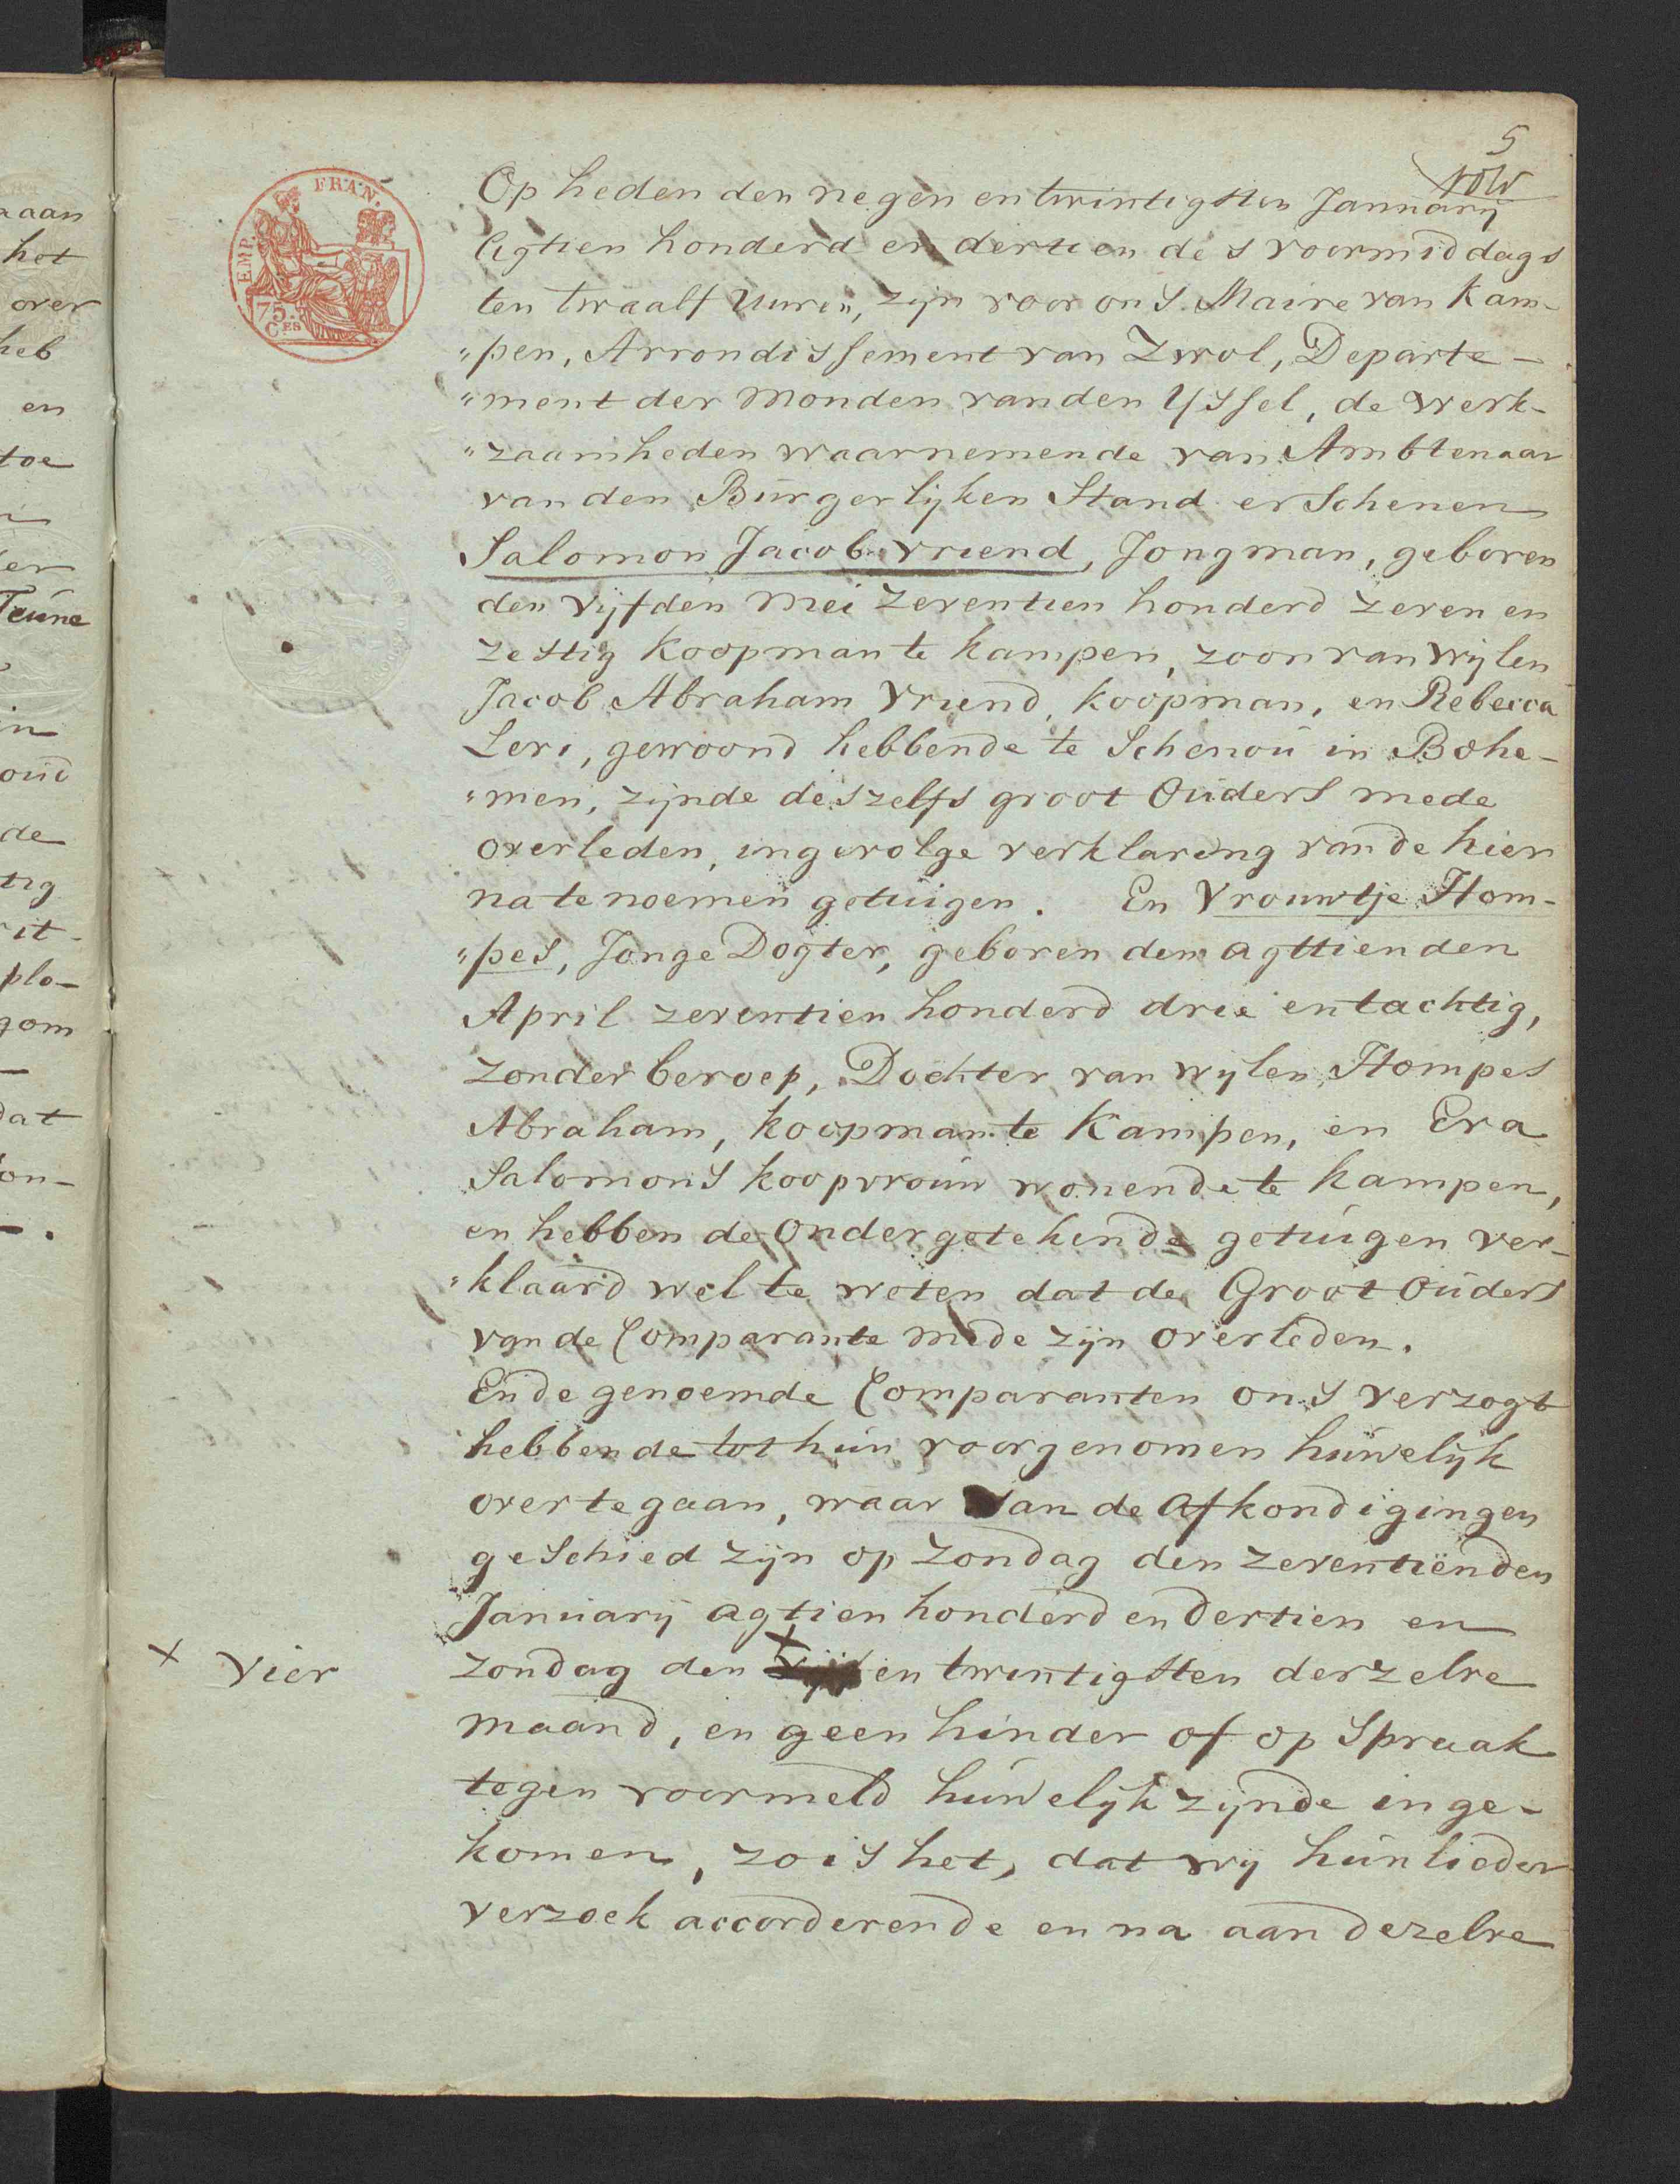 aan
het
over
heb
en
toe
er
Teune
in
oud
de
tig
it-
plo-
gom
dat
on-
5
EMP. FRAN.
75.
CES
Op heden den negen en twintigsten January
Agtien honderd en dertien des voormiddags
ten twaalf Uuren, zijn voor ons Maire van Kam-
"pen, Arrondissement van Zwol, Departe-
"ment der Monden van den YSsel, de werk-
"zaamheden waarnemende van Ambtenaar
van den Burgerlijken Stand erschenen
Salomon Jacob Vriend, Jongman, geboren
den vijfden Mei zeventien honderd zeven en
zestig Koopman te Kampen, zoon van wijlen
Jacob Abraham Vriend, koopman, en Rebecca
Levi, gewoond hebbende te Schenou in Bohe-
"men, zijnde deszelfs groot Ouders mede
overleden, ingevolge verklaring van de hier
na te noemen getuigen. En Vrouwtje Hom-
"pes, Jonge Dogter, geboren den agttienden
April zeventien honderd drie en tachtig,
zonder beroep, Dochter van wijlen Hompes
Abraham, koopman te Kampen, en Eva
Salomons koopvrouw wonende te Kampen,
en hebben de Ondergetekende getuigen ver-
"klaard wel te weten dat de Groot Ouders
van de Comparante mede zijn overleden.
En de genoemde Comparanten ons verzogt
hebbende tot hun voorgenomen huwelijk
over te gaan, waar van de Afkondigingen
geschied zijn op zondag den zeventienden
January agtien honderd en dertien en
x Vier
zondag den x vijf en twintigsten derzelve
maand, en geen hinder of op spraak
tegen voormeld huwelijk zijnde inge-
komen, zo is het, dat wij hunlieder
verzoek accorderende en na aan dezelve